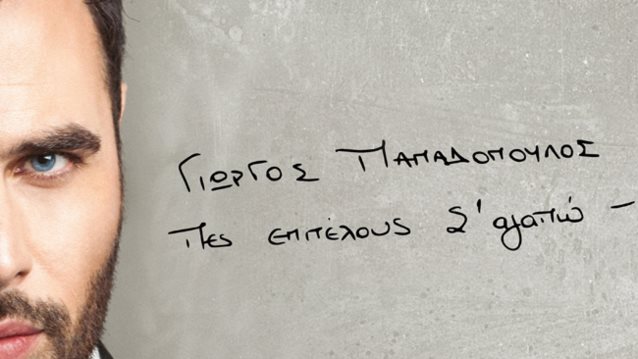 Γιώργος Παπαδόπουλος
Πες επιτέλους Σ'αγαπώ -